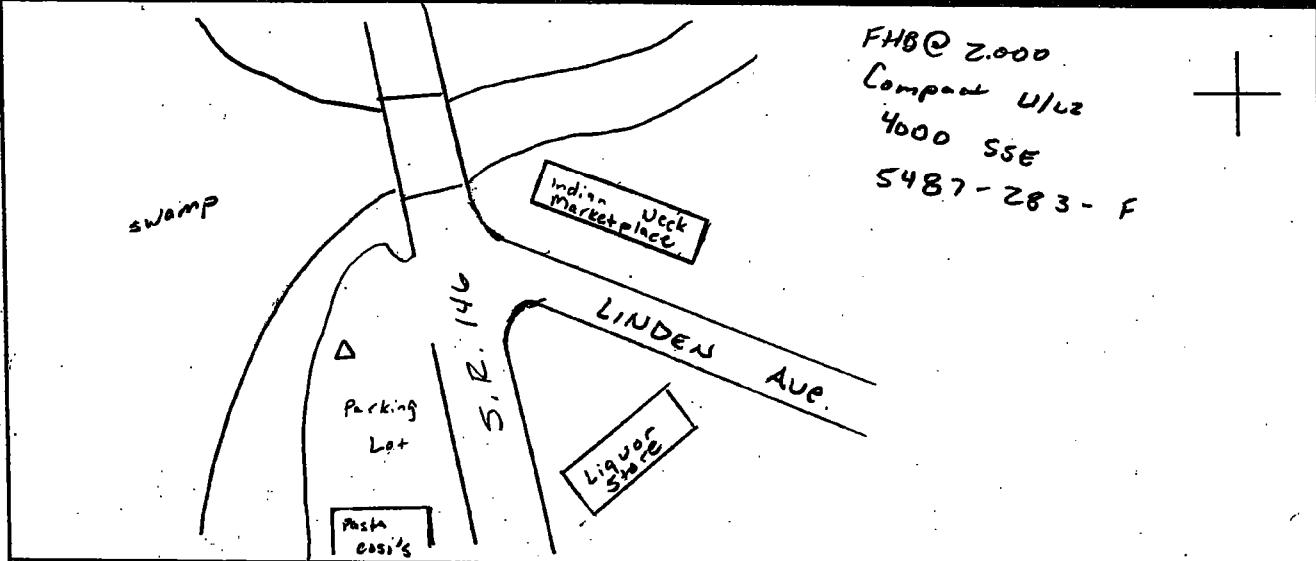 FHB@ 2.000
Compact W/LZ
4000 SSE
5487-283-F
swamp
Indian Neck
Marketplace
S.R. 146
LINDEN Ave.
Parking
Lot
Liquor
Store
Pasta
Cosi's